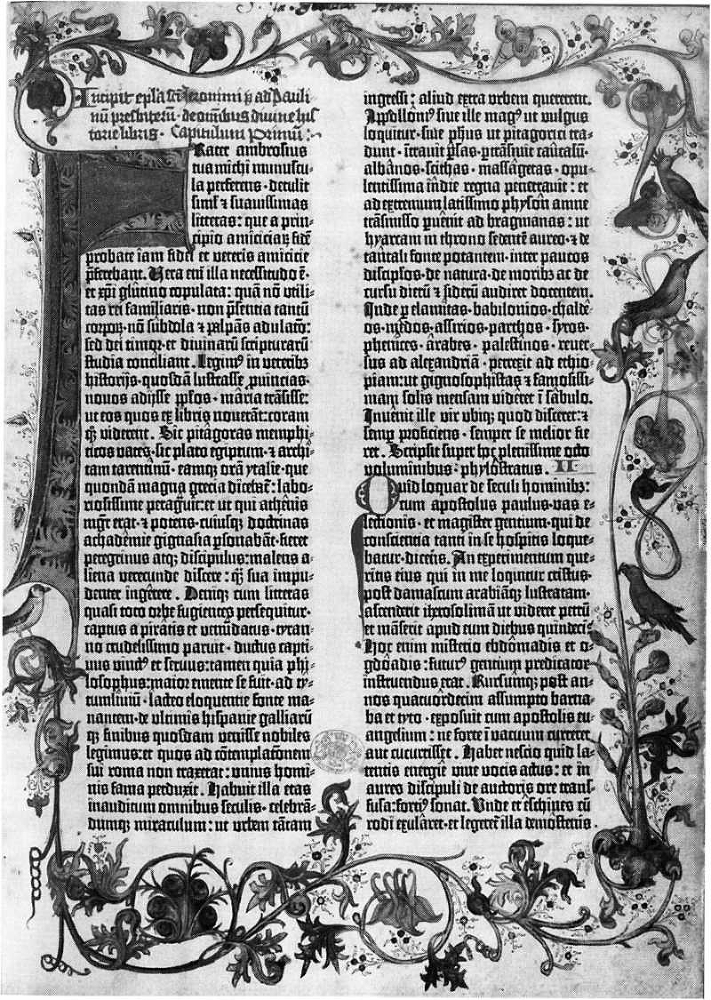 Incipit epl̃a sc̃i Jeronimi p̃ ad Pauli
nũ presbiterũ · de om̃ibus divine his
torie libris · Capitulum Primũ :
Frater ambrosius
tua michi munuscu⸗
la perferens · detulit
simĩ ⁊ suavissimas
litteras: que a prin⸗
cipio amiciciaꝝ fidẽ
probate iam fidei et veteris amicicie
p̃ferebant. Vera eñi illa necessitudo ẽ ·
et xp̃i glutino copulata: quã nõ utili⸗
tas rei familiaris · non p̃sentia tantũ
corporꝝ · nõ subdola ⁊ palpãs adulatõ:
sed dei timor · et divinarũ scripturarũ
studia conciliant. Legimꝰ in veteribꝫ
historijs · quosdã lustrasse p̲vincias ·
novos adijsse pp̃los · maria trãsisse:
ut eos quos ex libris noverãt: coram
qꝫ viderent. Sic pitãgoras memphi⸗
ticos vates · sic plato egiptum · ⁊ archi⸗
tam tarentinũ · eamqꝫ orã ytalie · que
quondã magna grecia dicebat̃: labo⸗
riosissime peragravit: et ut qui athẽnis
mg̃r erat · ⁊ potens · cuiusqꝫ doctrinas
achadẽmie gignasia p̲sonabãt · fieret
peregrinus atqꝫ discipulus: malens a⸗
liena verecunde discere: qꝫ sua impu⸗
denter ingẽrere. Deniqꝫ cum litteras
quasi toto orbe fugientes persequitur ·
captus a piratis et venũdatus · tyran⸗
no crudelissimo paruit · ductus capti⸗
vus vinctꝰ et servus: tamen quia phi⸗
losophus: maior emente se fuit · ad ty⸗
tumliviũ · lacteo eloquentie fonte ma⸗
nantem · de ultimis hispanie galliarũ
qꝫ finibus quosdam venisse nobiles
legimus: et quos ad cõtemplatõnem
sui roma non traxerat: unius homi⸗
nis fama perduxit. Habuit illa etas
inauditum omnibus seculis · celebrã⸗
dumqꝫ miraculum: ut urbem tãtam
ingressi: aliud extra urbem quererent.
Appollonĩꝰ sive ille magꝰ ut vulgus
loquitur · sive ph̃us ut pitagorici tra⸗
dunt · ĩtravit p̃sas · p̲trãsivit caucasũ ·
albãnos · scithas · massãgetas · opu⸗
lentissima ĩndie regna penetravit: et
ad extremum latissimo physõn amne
trãsmisso p̲venit ad bragmanas: ut
hyarcam in throno sedentẽ aureo · ⁊ de
tantali fonte potantem · inter paucos
discipl̃os · de natura · de moribꝫ ac de
cursu dierũ ⁊ siderũ audiret docentem.
Inde p̲ elamitas · babilonios · chalde⸗
os · mẽdos · assirios · parthos · syros ·
phenices · arabes · palestinos · rever⸗
sus ad alexandriã · perrexit ad ethio⸗
piam: ut gignosophistas ⁊ famosissi⸗
mam solis mensam videret ĩ sabulo.
Invẽnit ille vir ubiqꝫ quod disceret: ⁊
semp̲ proficiens · semper se melior fie⸗
ret. Scripsit super hoc plenissime octo
voluminibus · phylostratus. II
Quid loquar de seculi hominibꝫ:
cum apostolus paulus · vas e⸗
lectionis · et magister gentium · qui de
conscientia tanti in se hospitis loque⸗
batur · dicens. An experimentum que⸗
ritis eius qui in me loquitur cristus.
post damascum arabiãqꝫ lustratam ·
ascenderit iherosolimã ut videret petrũ
et mãserit apud eum diebus quindecĩ.
Hoc enim misterio ebdõmadis et o⸗
gdõadis: futurꝰ gentium predicator
instruendus erat. Rursumqꝫ post an⸗
nos quatuordecim assumpto barna⸗
ba et tyto · exposuit cum apostolis eu⸗
angelium: ne forte ĩ vacuum curreret
aut cucurrisset. Habet nescio quid la⸗
tentis energie vive vocis actus: et in
aures discipuli de auctoris ore trans⸗
fusa: fortiꝰ sonat. Unde et eschines cũ
rodi exularet · et legeret̃ illa demosteris.